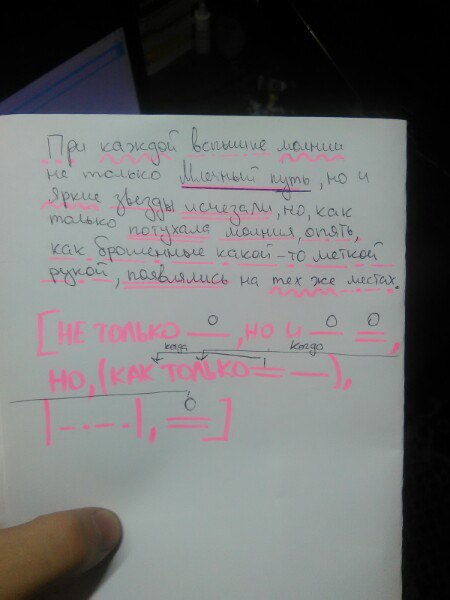 При каждой вспышке молнии
не только Млечный путь, но и
яркие звезды исчезали, но, как
только потухала молния, опять,
как брошенные какой-то меткой
рукой, появлялись на тех же местах.
[НЕ ТОЛЬКО —, НО И — =,
когда Когда
НО, (КАК ТОЛЬКО = —),
|_._._.|, =]